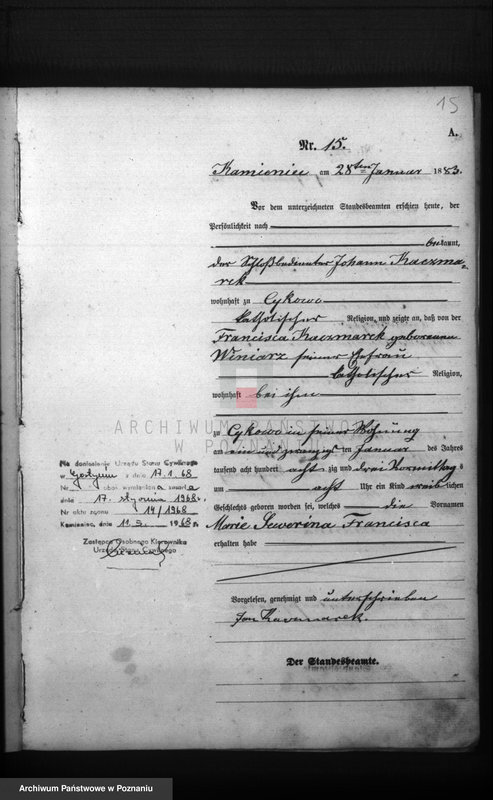 15
A.
Nr. 15.
Kamieniec am 28ten Januar 1883.
Vor dem unterzeichneten Standesbeamten erschien heute, der
Persönlichkeit nach
bekannt,
der Schloßbedienter Johann Kaczma-
rek
wohnhaft zu Cykowo
katholischer Religion, und zeigte an, daß von der
Francisca Kaczmarek geborenen
Winiarz seiner Ehefrau
katholischer Religion,
wohnhaft bei ihm
zu Cykowo in seiner Wohnung
am ein und zwanzigsten Januar des Jahres
tausend acht hundert achtzig und drei Vormittags
um acht Uhr ein Kind weiblichen
Geschlechts geboren worden sei, welches die Vornamen
Marie Sewerina Francisca
erhalten habe
Vorgelesen, genehmigt und unterschrieben
Jan Kaczmarek.
Der Standesbeamte.
Na doniesienie Urzędu Stanu Cywilnego
w Gostyniu z dnia 17.1.68
Nr obok wymieniona zmarła
dnia 17. stycznia 1968 r.
Nr aktu zgonu 14/1968
Kamieniec, dnia 1968 r.
Zastępca Osobnego Kierownika
Urzędu Stanu Cywilnego
ARCHIWUM PAŃSTWOWE
W POZNANIU
Archiwum Państwowe w Poznaniu